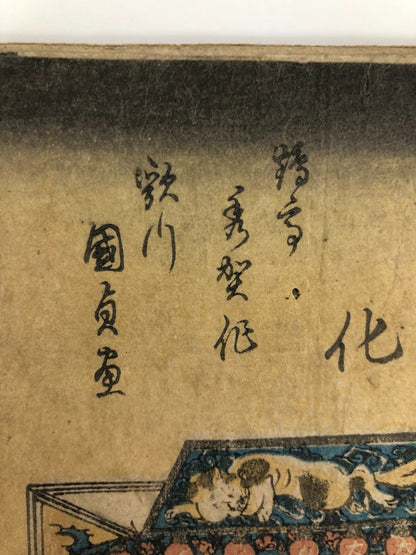 化
鶴亭
秀賀作
歌川
國貞画